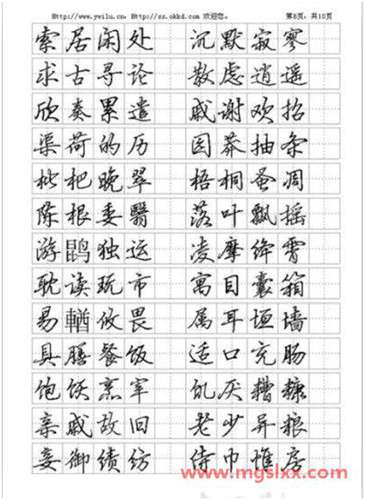 欢迎您。 第8页，共10页
索居闲处 沉默寂寥
求古寻论 散虑逍遥
欣奏累遣 戚谢欢招
渠荷的历 园莽抽条
枇杷晚翠 梧桐蚤凋
陈根委翳 落叶飘摇
游鹍独运 凌摩绛霄
耽读玩市 寓目囊箱
易輶攸畏 属耳垣墙
具膳餐饭 适口充肠
饱饫烹宰 饥厌糟糠
亲戚故旧 老少异粮
妾御绩纺 侍巾帷房
www.mgslxx.com